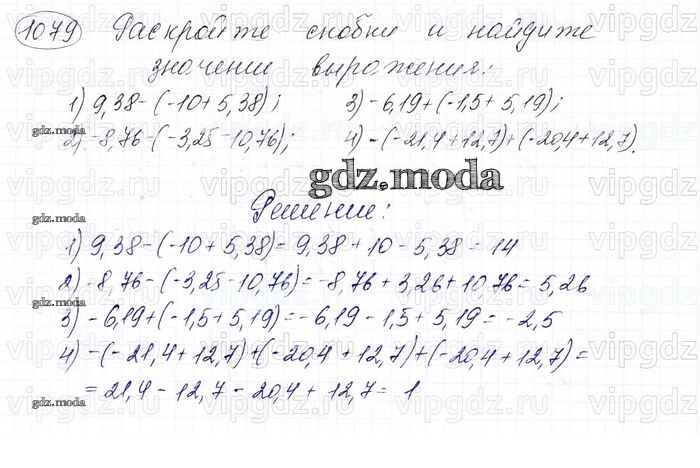 1079 Раскройте скобки и найдите
значение выражения:
1) 9,38-(-10+5,38); 3) -6,19+(-1,5+5,19);
2) -8,76-(-3,25-10,76); 4) -(-21,4+12,7)+(-20,4+12,7).
gdz.moda
Решение:
1) 9,38-(-10+5,38)=9,38+10-5,38=14
2) -8,76-(-3,25-10,76)=-8,76+3,26+10,76=5,26
3) -6,19+(-1,5+5,19)=-6,19-1,5+5,19=-2,5
4) -(-21,4+12,7)+(-20,4+12,7)+(-20,4+12,7)=
=21,4-12,7-20,4+12,7=1
gdz.moda
gdz.moda
gdz.moda
gdz.moda
vipgdz